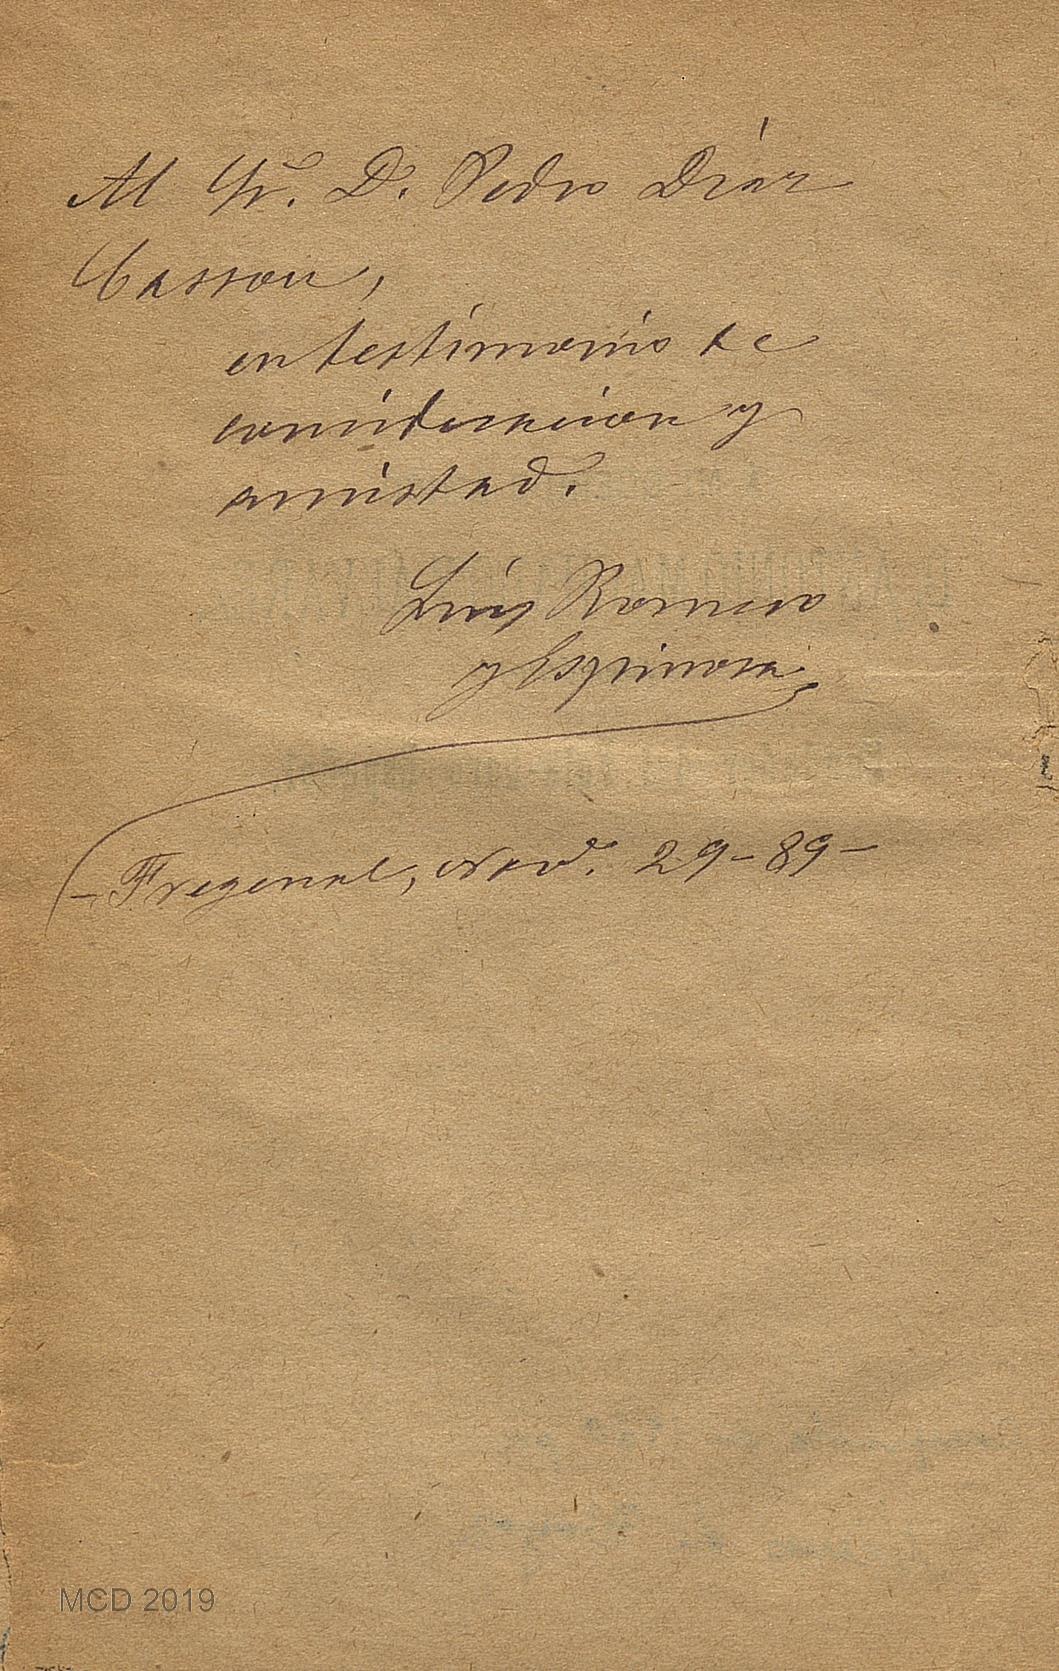 Al Sr. D. Pedro Díaz
Cassou,
en testimonio de
consideracion y
amistad.
Luis Romero
y Espinosa
- Fregenal, Novе. 29-89-
MCD 2019